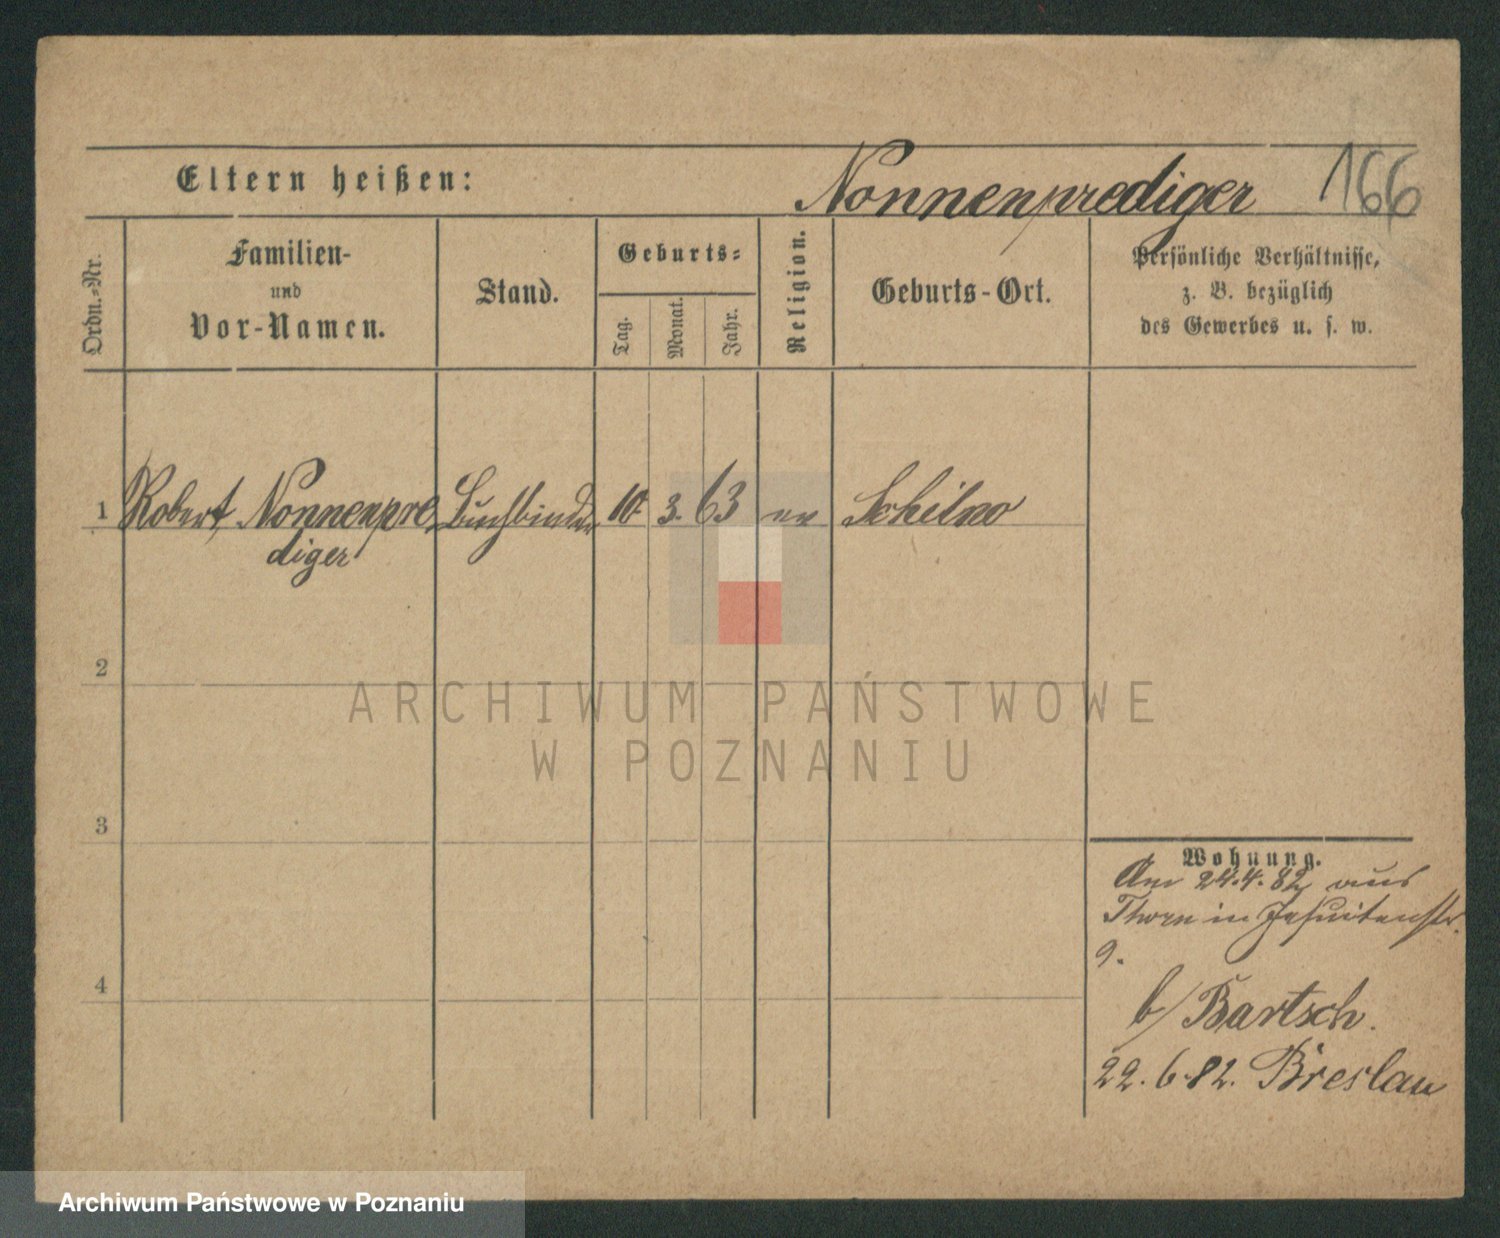 Eltern heißen:
Nonnenprediger 166
Ordn.-Nr.
Familien-
und
Vor-Namen.
Stand.
Geburts-
Tag.
Monat.
Jahr.
Religion.
Geburts-Ort.
Persönliche Verhältnisse,
z. B. bezüglich
des Gewerbes u. s. w.
1 Robert Nonnenpre Buchbinder 10. 3. 63 ev Schilno
diger
2
ARCHIWUM PAŃSTWOWE
W POZNANIU
3
Wohnung.
Am 24.4.82 aus
Thorn in Jesuitenstr.
9.
4
b/ Bartsch.
22.6.82. Breslau
Archiwum Państwowe w Poznaniu